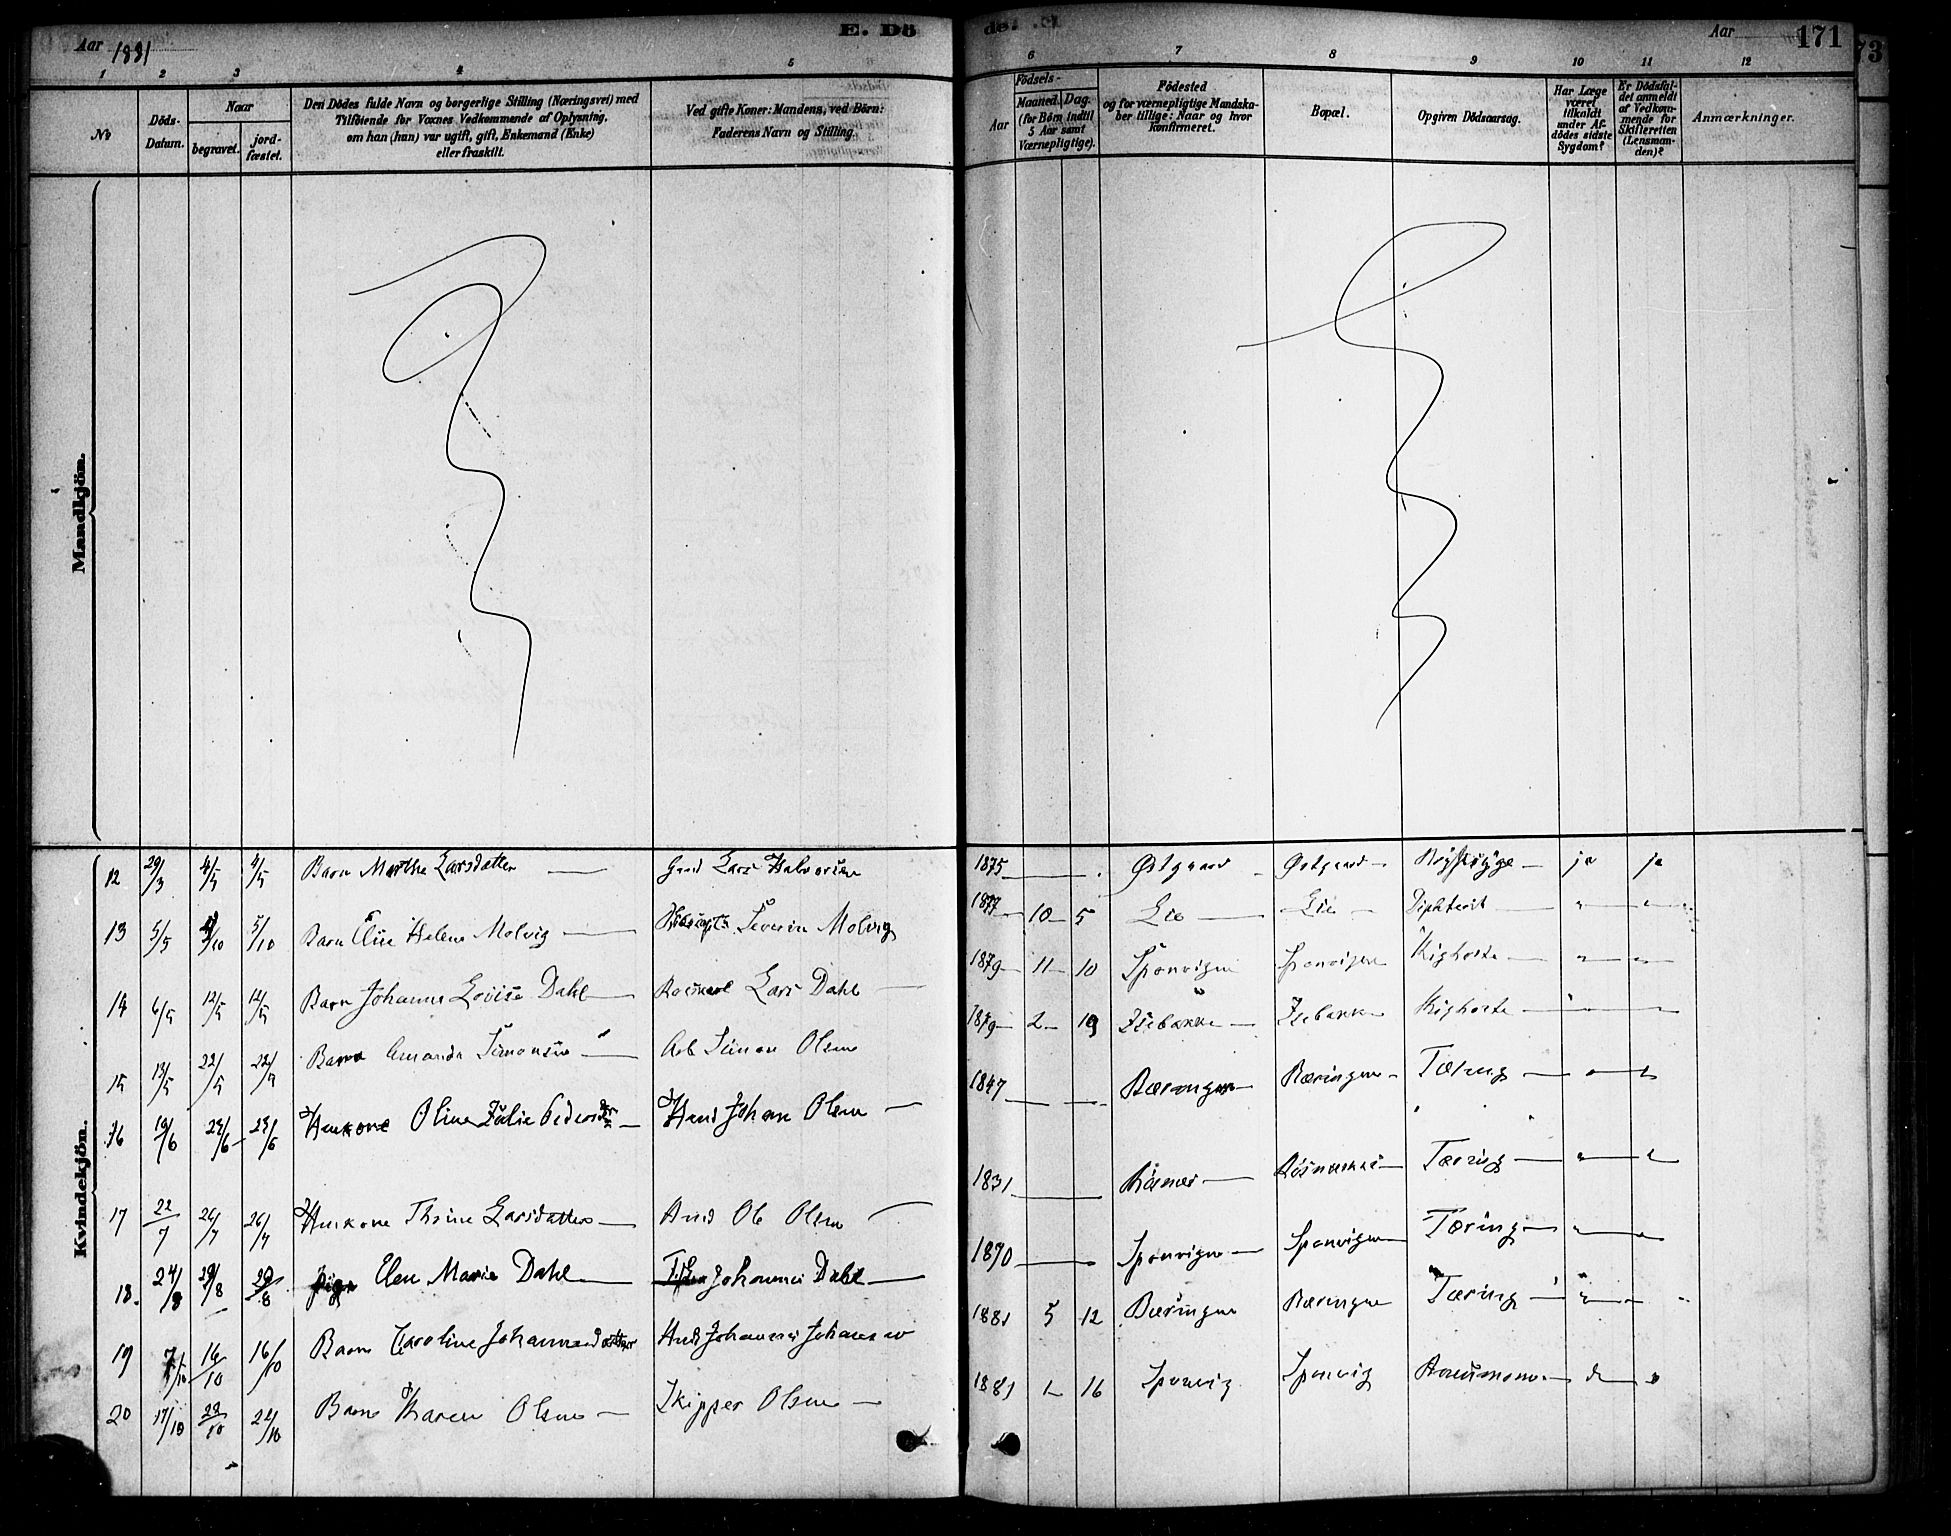 Aar 1881
E. Dö
de.
Aar
171
73
1 2 3 4 5 6 7 8 9 10 11 12
No
Döds-
Datum.
Naar
begravet.
jord-
fæstet.
Den Dödes fulde Navn og borgerlige Stilling (Næringsvei) med
Tilföiende for Voxnes Vedkommende af Oplysning,
om han (hun) var ugift, gift, Enkemand (Enke)
eller fraskilt.
Ved gifte Koner: Mandens, ved Börn:
Faderens Navn og Stilling.
Födsels-
Aar
Maaned.
Dag.
(for Börn indtil
5 Aar samt
Værnepligtige).
Födested
og for værnepligtige Mandska-
ber tillige: Naar og hvor
konfirmeret.
Bopæl.
Opgiven Dödsaarsag.
Har Læge
været
tilkaldt
under Af-
dödes sidste
Sygdom?
Er Dödsfal-
det anmeldt
af Vedkom-
mende for
Skifteretten
(Lensman-
den)?
Anmærkninger.
Mandkjön.
Kvindekjön.
12 29/3 4/5 4/5 Barn Marthe Larsdatter — Gmd Lars Halvorsen 1875 — Østgaard Østgaard — — ja ja
13 5/5 5/10 Barn Elise Helene Molvig — Severin Molvig 1877 10 5 Lie — Lie — Diphterit — " — "
14 6/5 12/5 12/5 Barn Johanne Lovise Dahl — Lars Dahl — 1879 11 10 Sponvigen Sponvigen Kighoste — " — "
15 13/5 22/5 22/5 Barn Amanda Simonsen — Arb Simon Olsen 1879 2 19 — Kighoste — " —
16 19/6 24/6 Huskone Oline Julie — Husd Johan Olsen — 1847 — Bæringen — Bæringen — Tæring — " — "
17 22/7 26/7 26/7 Huskone Thrine Larsdatter — Husd Ole Olsen 1831 — — — Tæring — " — "
18. 24/8 29/8 29/8 Pige Elen Marie Dahl — Johannes Dahl — 1870 — Sponvigen — Sponvigen — Tæring — " — "
19 7/10 16/10 16/10 Barn Caroline Johannesdatter Husd Johannes Johansen 1881 5 12 Bæringen Bæringen Tæring — " — "
20 17/10 22/10 22/10 Barn Karen Olsen — Skipper Olsen — 1881 1 16 Sponvig Sponvig — "